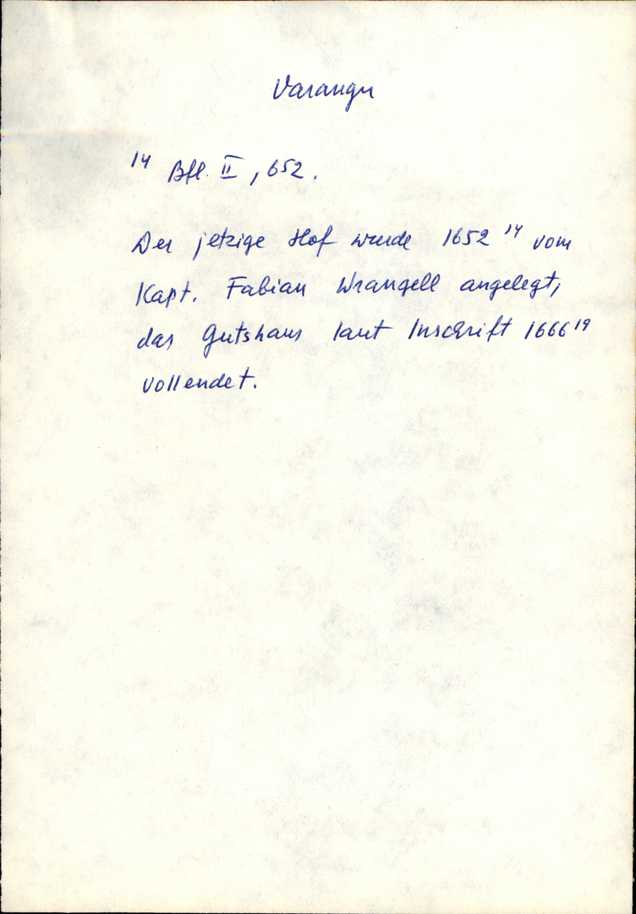 Varangu
¹⁴ Bfl. II, 652.
Der jetzige Hof wurde 1652 ¹⁴ vom
Kapt. Fabian Wrangell angelegt,
das Gutshaus laut Inschrift 1666¹⁹
vollendet.